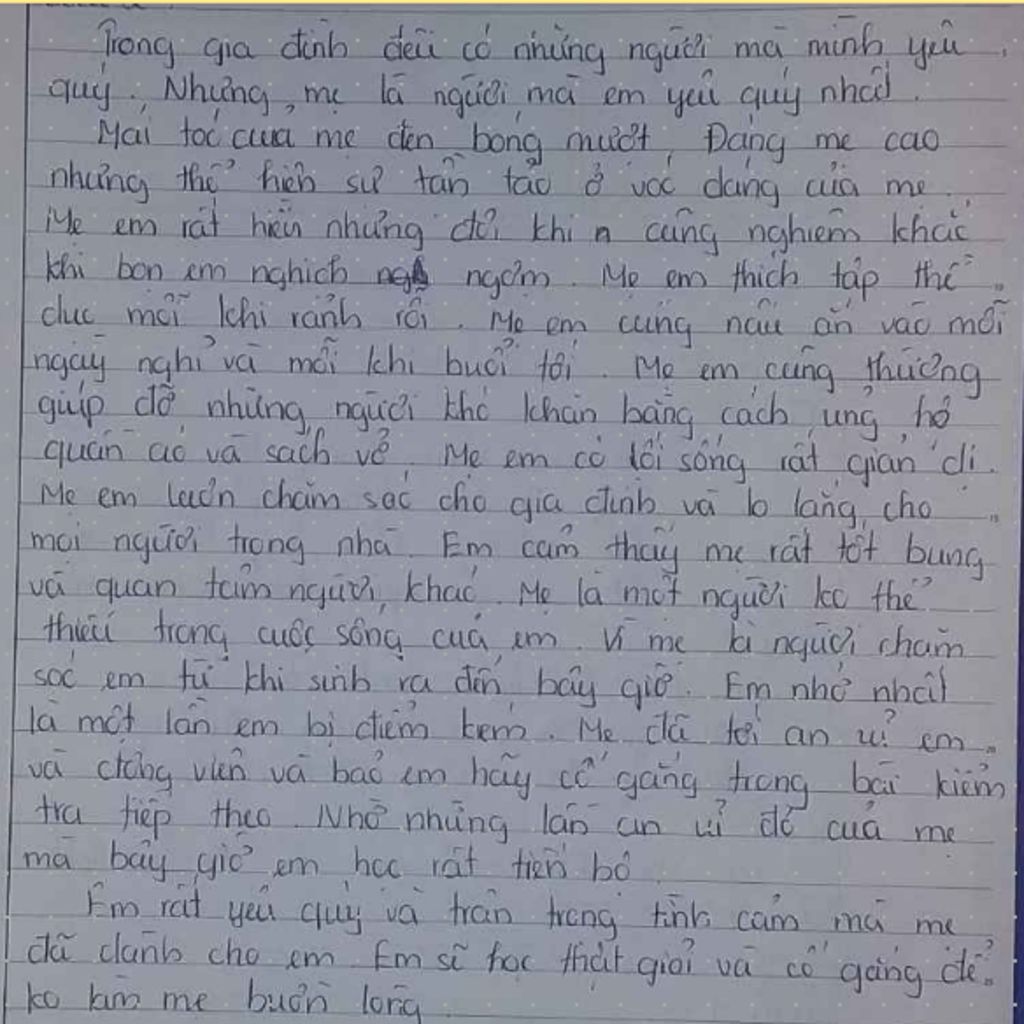 Trong gia đình đều có những người mà mình yêu
quý. Nhưng, mẹ là người mà em yêu quý nhất.
Mái tóc của mẹ đen bóng mượt. Dáng mẹ cao
nhưng thể hiện sự tần tảo ở vóc dáng của mẹ.
Mẹ em rất hiền nhưng đôi khi cũng nghiêm khắc
khi bọn em nghịch ngợm. Mẹ em thích tập thể
dục mỗi khi rảnh rỗi. Mẹ em cũng nấu ăn vào mỗi
ngày nghỉ và mỗi khi buổi tối. Mẹ em cũng thường
giúp đỡ những người khó khăn bằng cách ủng hộ
quần áo và sách vở. Mẹ em có lối sống rất giản dị.
Mẹ em luôn chăm sóc cho gia đình và lo lắng cho
mọi người trong nhà. Em cảm thấy mẹ rất tốt bụng
và quan tâm người khác. Mẹ là một người ko thể
thiếu trong cuộc sống của em. Vì mẹ là người chăm
sóc em từ khi sinh ra đến bây giờ. Em nhớ nhất
là một lần em bị điểm kém. Mẹ đã tới an ủi em
và động viên và bảo em hãy cố gắng trong bài kiểm
tra tiếp theo. Nhờ những lần an ủi đó của mẹ
mà bây giờ em học rất tiến bộ.
Em rất yêu quý và trân trọng tình cảm mà mẹ
đã dành cho em. Em sẽ học thật giỏi và cố gắng để
ko làm mẹ buồn lòng.